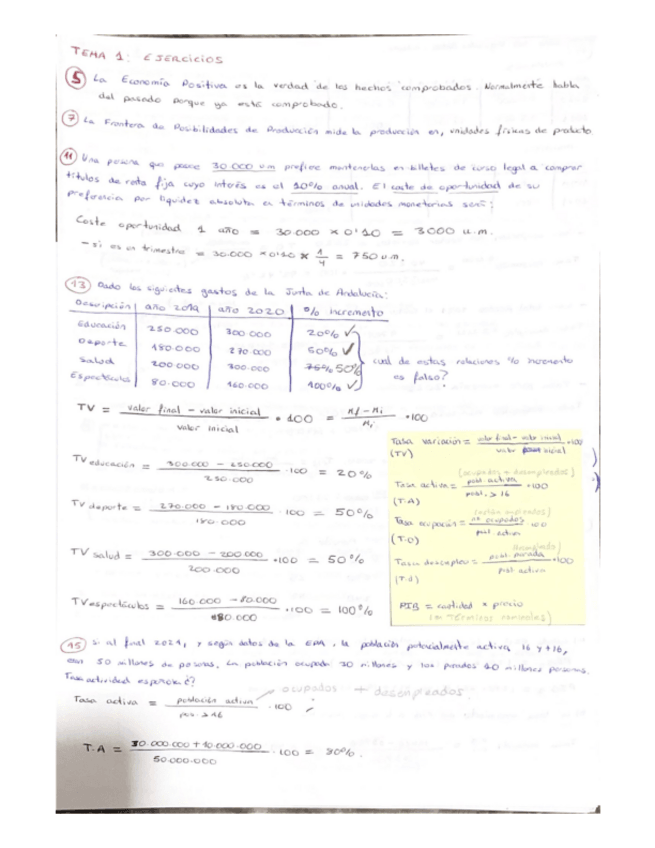 TEMA 1: EJERCICIOS
5 La Economía Positiva es la verdad de los hechos comprobados. Normalmente habla
del pasado porque ya está comprobado.
7 La Frontera de Posibilidades de Producción mide la producción en, unidades físicas de producto
11 Una persona que posee 30.000 um prefiere mantenerlas en billetes de curso legal a comprar
títulos de renta fija cuyo interés es el 10% anual. El coste de oportunidad de su
preferencia por liquidez absoluta en términos de unidades monetarias será:
Coste oportunidad 1 año = 30.000 x 0'10 = 3000 u.m.
- si es un trimestre = 30.000 x 0'10 x 1/4 = 750 u.m.
13 Dado los siguientes gastos de la Junta de Andalucía:
Descripción año 2019 año 2020 % incremento
Educación 250.000 300.000 20% ✓
Deporte 180.000 270.000 50% ✓
Salud 200.000 300.000 75% 50%
Espectáculos 80.000 160.000 100% ✓
cual de estas relaciones % incremento
es falso?
TV = valor final - valor inicial / valor inicial · 100 = Nf - Ni / Ni · 100
TV educación = 300.000 - 250.000 / 250.000 · 100 = 20%
TV deporte = 270.000 - 180.000 / 180.000 · 100 = 50%
TV salud = 300.000 - 200.000 / 200.000 · 100 = 50%
TV espectáculos = 160.000 - 80.000 / 80.000 · 100 = 100%
Tasa variación = valor final - valor inicial / valor inicial · 100
(TV)
(ocupados + desempleados)
Tasa activa = pobl. activa / pobl. > 16 · 100
(T.A)
Tasa ocupación = nº ocupados / pobl. activa · 100
(T.O)
(desempleado)
Tasa desempleo = pobl. parada / pobl. activa · 100
(T.d)
PIB = cantidad x precio
(en términos nominales)
15 Si al final 2021, y según datos de la EPA, la población potencialmente activa, 16 y +16,
son 50 millones de personas, la población ocupada 30 millones y los parados 10 millones personas.
Tasa actividad española?
ocupados + desempleados
Tasa activa = población activa / pob. > 16 · 100
T.A = 30.000.000 + 10.000.000 / 50.000.000 · 100 = 80%.